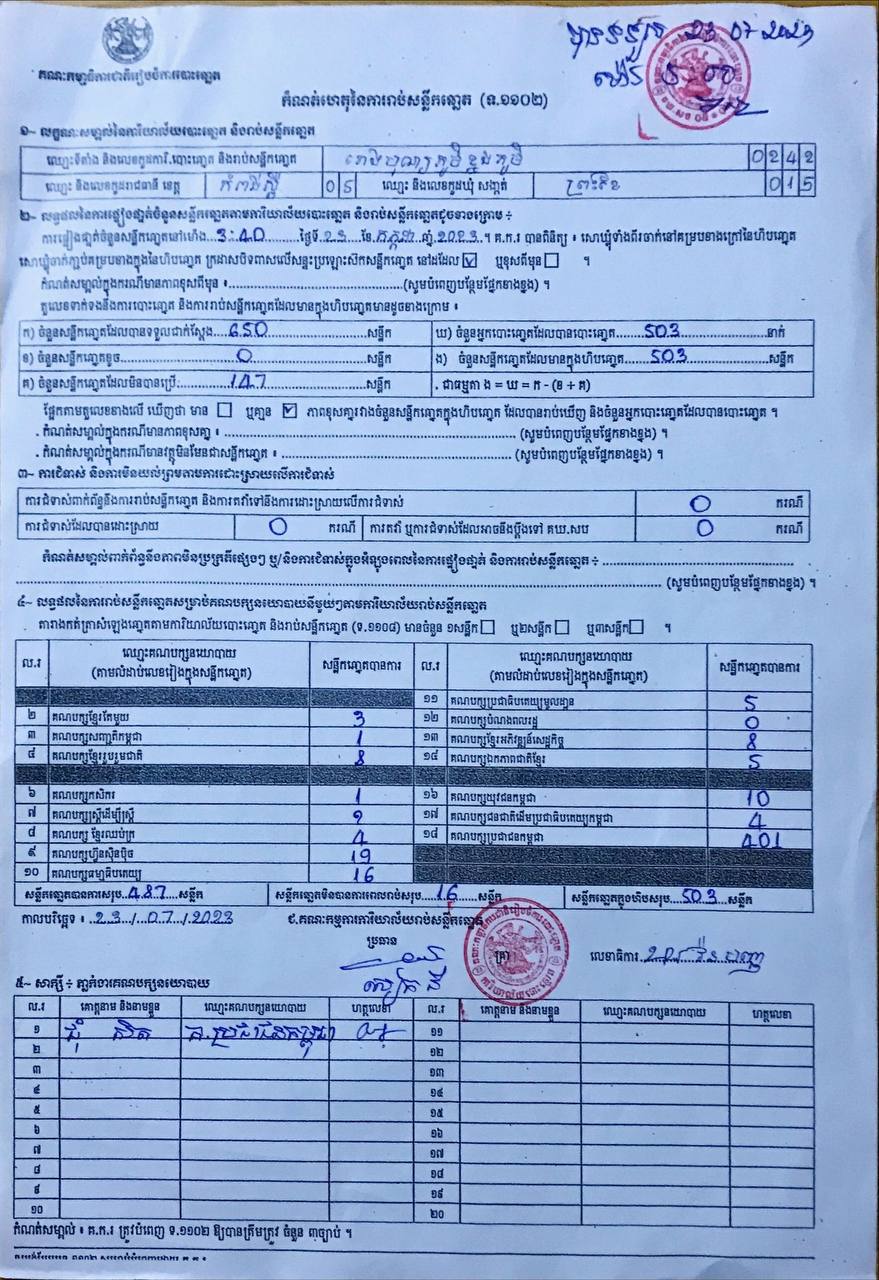 23 07 2023
គណៈកម្មាធិការជាតិរៀបចំការបោះឆ្នោត
កំណត់ហេតុនៃការរាប់សន្លឹកឆ្នោត (ទ.១១០២)
១~ លក្ខណៈសម្គាល់នៃការិយាល័យបោះឆ្នោត និងរាប់សន្លឹកឆ្នោត
ឈ្មោះទីតាំង និងលេខកូដការិ.បោះឆ្នោត និងរាប់សន្លឹកឆ្នោត 0242
ឈ្មោះ និងលេខកូដរាជធានី ខេត្ត កំពង់ស្ពឺ 05 ឈ្មោះ និងលេខកូដឃុំ សង្កាត់ 015
២~ លទ្ធផលនៃការផ្ទៀងផ្ទាត់ចំនួនសន្លឹកឆ្នោតតាមការិយាល័យបោះឆ្នោត និងរាប់សន្លឹកឆ្នោតដូចខាងក្រោម ÷
ការផ្ទៀងផ្ទាត់ចំនួនសន្លឹកឆ្នោតនៅម៉ោង 3:40 ថ្ងៃទី 23 ខែ កក្កដា ឆ្នាំ 2023 ។ គ.ក.រ បានពិនិត្យ ៖ សោឃ្មុំទាំង៤ចាក់នៅគម្របខាងក្រៅនៃហិបឆ្នោត
សោឃ្មុំចាក់ភ្ជាប់គម្របខាងក្នុងនៃហិបឆ្នោត ក្រដាសបិទពាសលើសន្ទះប្រឡោះស៊ីកសន្លឹកឆ្នោត នៅដដែល ☑ ឬខុសពីមុន ☐ ។
កំណត់សម្គាល់ក្នុងករណីមានភាពខុសពីមុន ៖ (សូមបំពេញបន្ថែមផ្នែកខាងខ្នង) ។
តួលេខទាក់ទងនឹងការបោះឆ្នោត និងការរាប់សន្លឹកឆ្នោតដែលមានក្នុងហិបឆ្នោតមានដូចខាងក្រោម ៖
ក) ចំនួនសន្លឹកឆ្នោតដែលបានទទួលជាក់ស្ដែង 650 សន្លឹក ឃ) ចំនួនអ្នកបោះឆ្នោតដែលបានបោះឆ្នោត 503 នាក់
ខ) ចំនួនសន្លឹកឆ្នោតខូច 0 សន្លឹក ង) ចំនួនសន្លឹកឆ្នោតដែលមានក្នុងហិបឆ្នោត 503 សន្លឹក
គ) ចំនួនសន្លឹកឆ្នោតដែលមិនបានប្រើ 147 សន្លឹក . ជាធម្មតា ង = ឃ = ក - (ខ + គ)
ផ្អែកតាមតួលេខខាងលើ ឃើញថា មាន ☐ ឬគ្មាន ☑ ភាពខុសគ្នារវាងចំនួនសន្លឹកឆ្នោតក្នុងហិបឆ្នោត ដែលបានរាប់ឃើញ និងចំនួនអ្នកបោះឆ្នោតដែលបានបោះឆ្នោត ។
. កំណត់សម្គាល់ក្នុងករណីមានភាពខុសគ្នា ៖ (សូមបំពេញបន្ថែមផ្នែកខាងខ្នង) ។
. កំណត់សម្គាល់ក្នុងករណីមានវត្ថុមិនមែនជាសន្លឹកឆ្នោត ៖ (សូមបំពេញបន្ថែមផ្នែកខាងខ្នង) ។
៣~ ការជំទាស់ និងការមិនយល់ព្រមតាមការដោះស្រាយលើការជំទាស់
ការជំទាស់ពាក់ព័ន្ធនឹងការរាប់សន្លឹកឆ្នោត និងការតវ៉ាទៅនឹងការដោះស្រាយលើការជំទាស់ 0 ករណី
ការជំទាស់ដែលបានដោះស្រាយ 0 ករណី ការតវ៉ា ឬការជំទាស់ដែលអាចនឹងប្ដឹងទៅ គឃ.សប 0 ករណី
កំណត់សម្គាល់ពាក់ព័ន្ធនឹងភាពមិនប្រក្រតីផ្សេងៗ ឬ/និងការជំទាស់ក្នុងអំឡុងពេលនៃការផ្ទៀងផ្ទាត់ និងការរាប់សន្លឹកឆ្នោត ÷
(សូមបំពេញបន្ថែមផ្នែកខាងខ្នង) ។
៤~ លទ្ធផលនៃការរាប់សន្លឹកឆ្នោតសម្រាប់គណបក្សនយោបាយនីមួយៗតាមការិយាល័យរាប់សន្លឹកឆ្នោត
តារាងកត់ត្រាសំឡេងឆ្នោតតាមការិយាល័យបោះឆ្នោត និងរាប់សន្លឹកឆ្នោត (ទ.១១០៨) មានចំនួន ១សន្លឹក ☐ ឬ២សន្លឹក ☐ ឬ៣សន្លឹក ☐ ។
ល.រ ឈ្មោះគណបក្សនយោបាយ (តាមលំដាប់លេខរៀងក្នុងសន្លឹកឆ្នោត) សន្លឹកឆ្នោតបានការ ល.រ ឈ្មោះគណបក្សនយោបាយ (តាមលំដាប់លេខរៀងក្នុងសន្លឹកឆ្នោត) សន្លឹកឆ្នោតបានការ
១១ គណបក្សប្រជាធិបតេយ្យមូលដ្ឋាន 5
២ គណបក្សខ្មែរតែមួយ 3 ១២ គណបក្សបំណងពលរដ្ឋ 0
៣ គណបក្សសញ្ជាតិកម្ពុជា 1 ១៣ គណបក្សខ្មែរអភិវឌ្ឍន៍សេដ្ឋកិច្ច 8
៤ គណបក្សខ្មែររួបរួមជាតិ 8 ១៤ គណបក្សឯកភាពជាតិខ្មែរ 5
៦ គណបក្សកសិករ 1 ១៦ គណបក្សយុវជនកម្ពុជា 10
៧ គណបក្សស្ត្រីដើម្បីស្ត្រី 9 ១៧ គណបក្សជនជាតិដើមប្រជាធិបតេយ្យកម្ពុជា 4
៨ គណបក្ស ខ្មែរឈប់ក្រ 4 ១៨ គណបក្សប្រជាជនកម្ពុជា 401
៩ គណបក្សហ៊្វុនស៊ិនប៉ិច 19
១០ គណបក្សធម្មាធិបតេយ្យ 16
សន្លឹកឆ្នោតបានការសរុប 487 សន្លឹក សន្លឹកឆ្នោតមិនបានការពេលរាប់សរុប 16 សន្លឹក សន្លឹកឆ្នោតក្នុងហិបសរុប 503 សន្លឹក
កាលបរិច្ឆេទ ៖ 23/07/2023 ជ.គណៈកម្មការការិយាល័យរាប់សន្លឹកឆ្នោត
ប្រធាន ត្រា លេខាធិការ
៥~ សាក្សី ÷ ភ្នាក់ងារគណបក្សនយោបាយ
ល.រ គោត្តនាម និងនាមខ្លួន ឈ្មោះគណបក្សនយោបាយ ហត្ថលេខា ល.រ គោត្តនាម និងនាមខ្លួន ឈ្មោះគណបក្សនយោបាយ ហត្ថលេខា
១ គ.ប្រជាជនកម្ពុជា ១១
២ ១២
៣ ១៣
៤ ១៤
៥ ១៥
៦ ១៦
៧ ១៧
៨ ១៨
៩ ១៩
១០ ២០
កំណត់សម្គាល់ ៖ គ.ក.រ ត្រូវបំពេញ ទ.១១០២ ឱ្យបានត្រឹមត្រូវ ចំនួន ៣ច្បាប់ ។